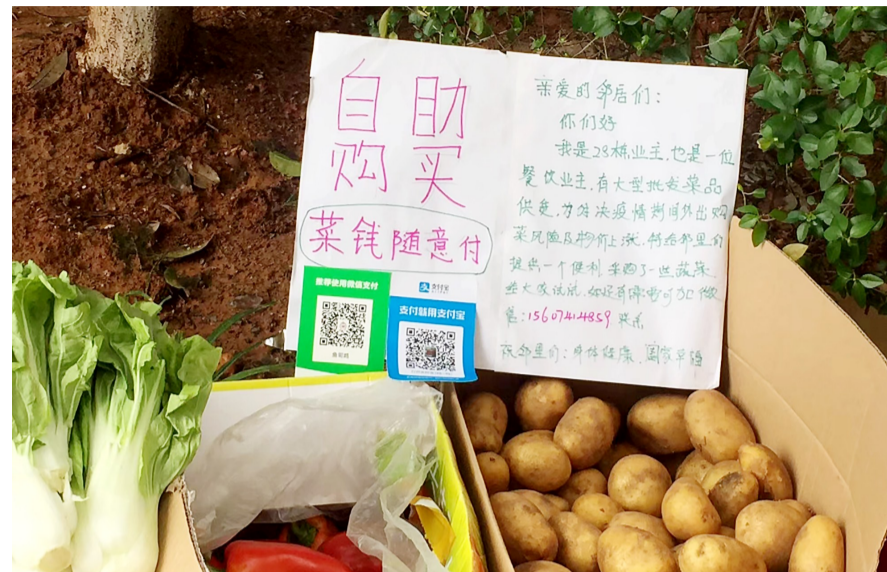 自助
购买
菜钱随意付
推荐使用微信支付
支付宝
支付就用支付宝
亲爱的邻居们：
你们好
我是28栋业主，也是一位
餐饮业主，有大型批发菜品
供应，为解决疫情期间外出购
菜风险及物价上涨，特给邻里们
提供一个便利，采购了一些蔬菜
给大家试试，如还有需要可加微
15607414859 联系
祝邻里们：身体健康，国家幸福